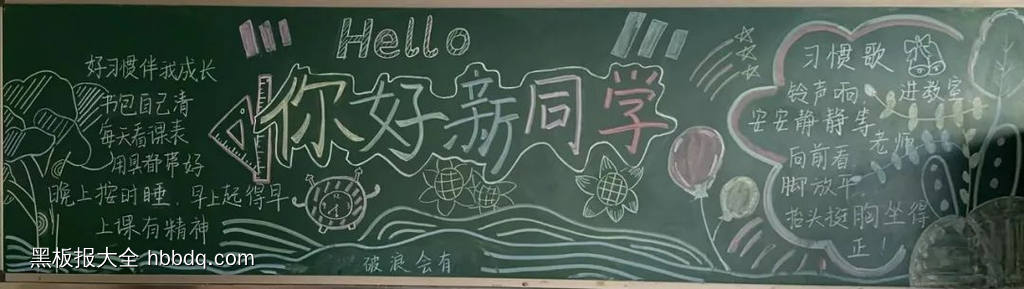 Hello
你好新同学
好习惯伴我成长
书包自己清
每天看课表
用具都带好
晚上按时睡.早上起得早
上课有精神
习惯歌
铃声响,进教室
安安静静等老师
向前看
脚放平
抬头挺胸坐得
正!
破浪会有
黑板报大全 hbbdq.com